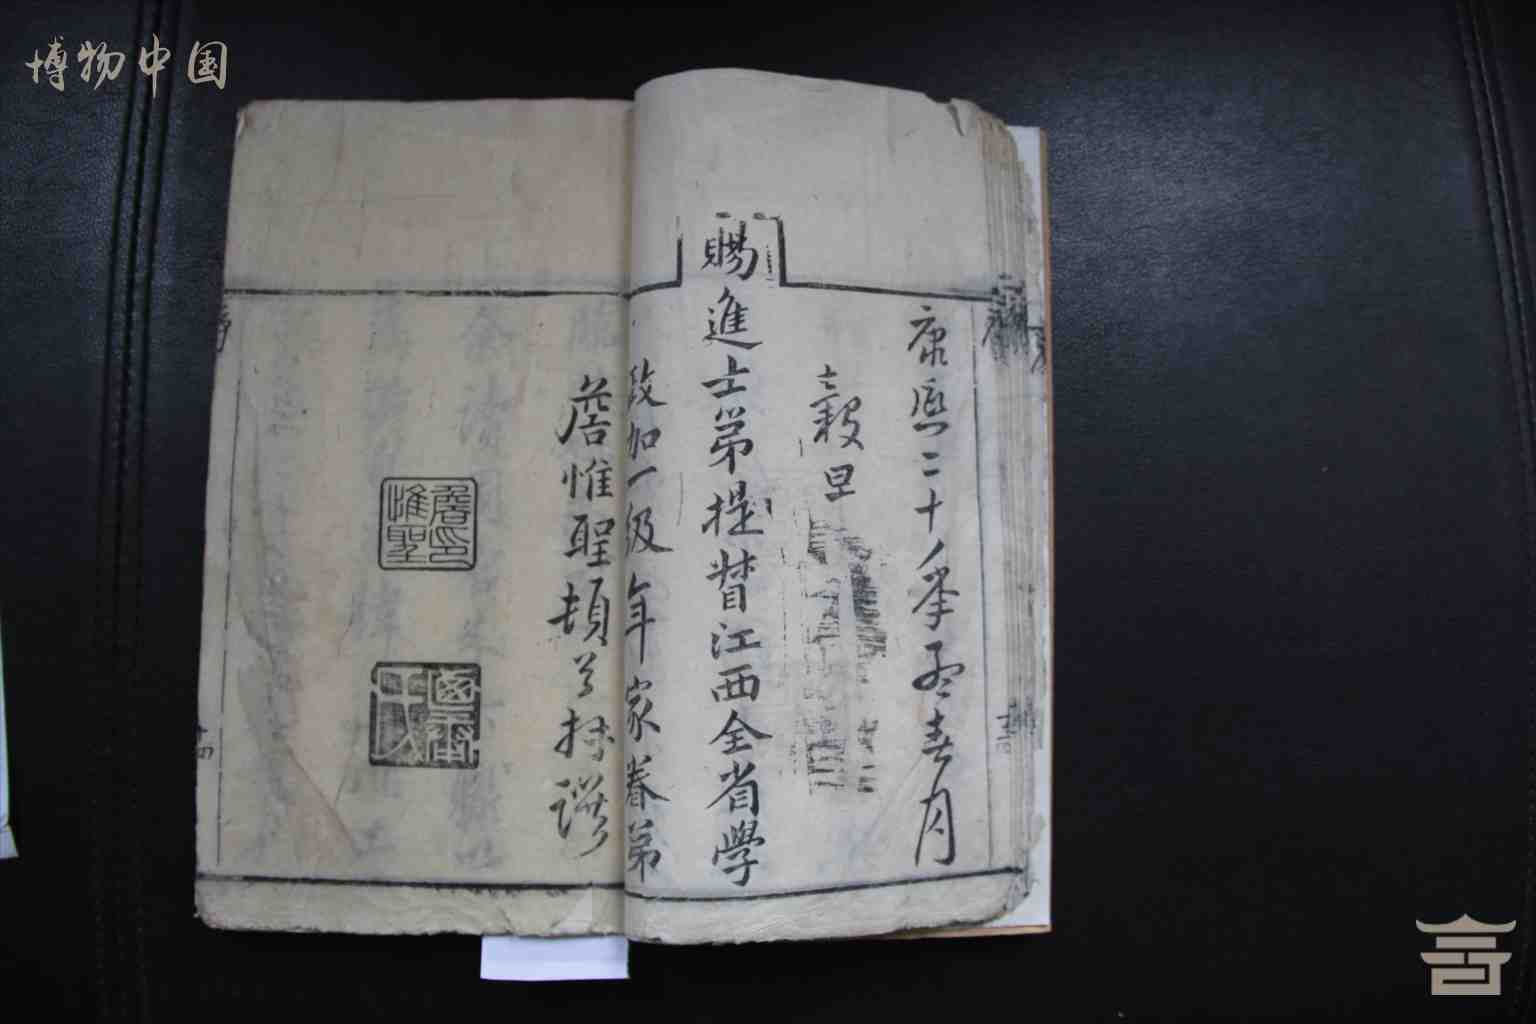 博物中国
康熙二十年孟春月
穀旦
賜進士第提督江西全省學
政加一級年家眷弟
詹惟聖頓首拜譔
詹印惟聖